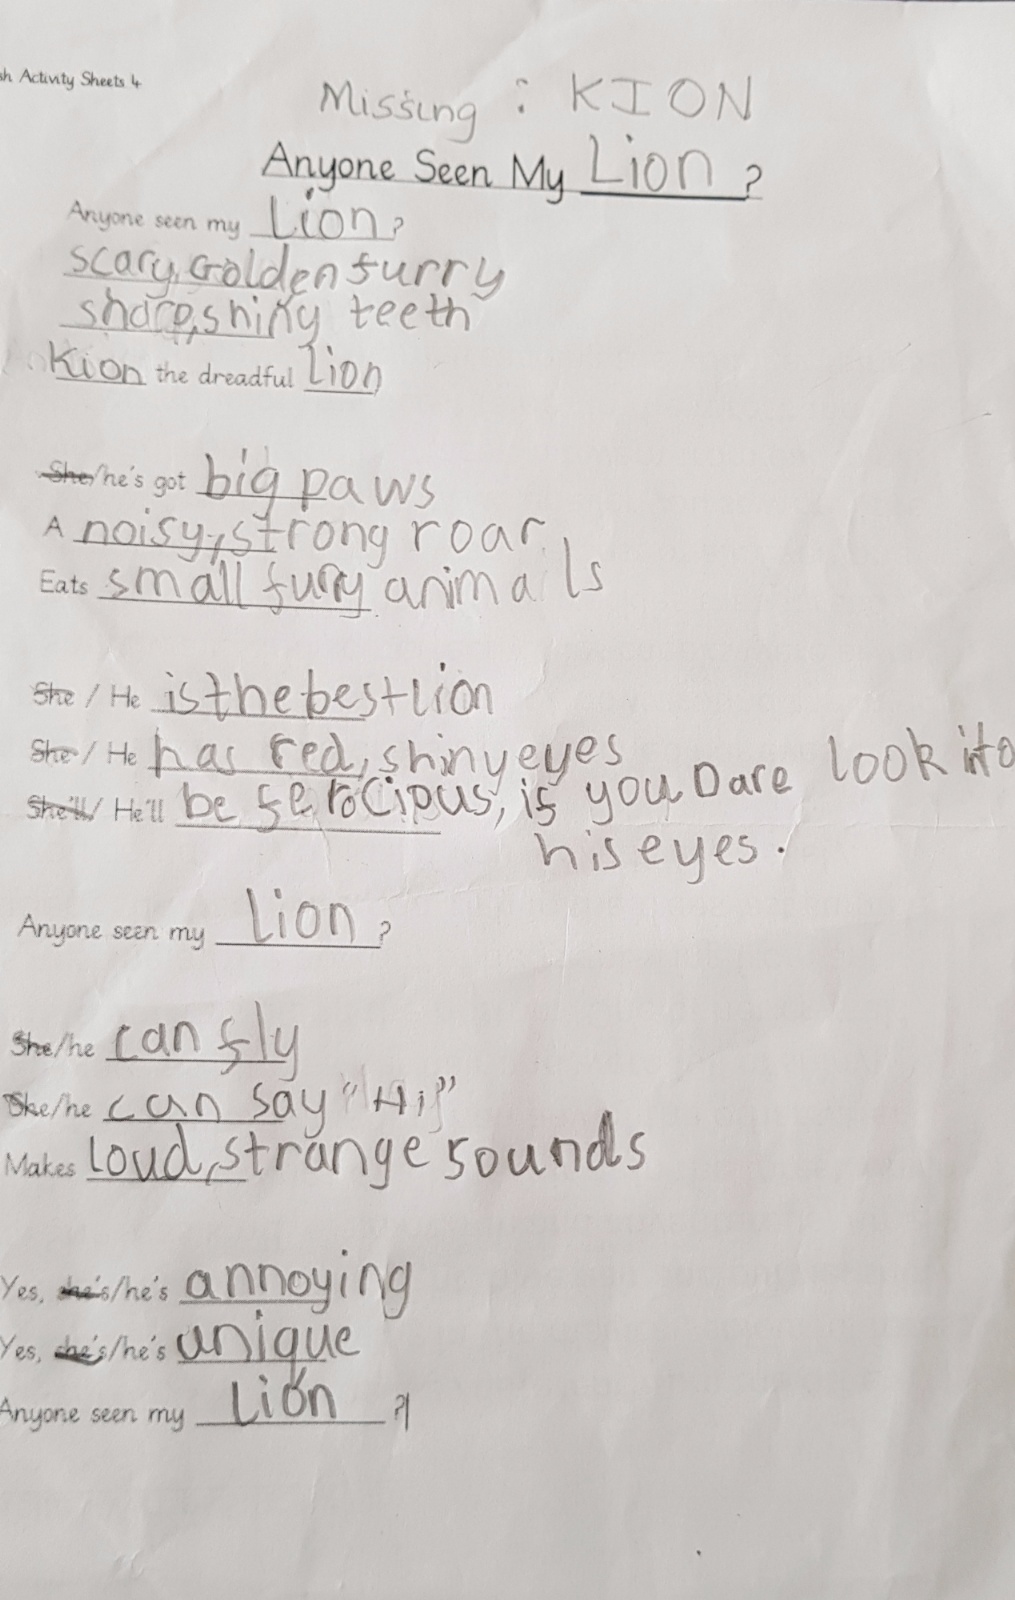 sh Activity Sheets 4
Missing : KION
Anyone Seen My Lion ?
Anyone seen my Lion ?
scary, Golden furry
sharp, shiny teeth
Kion the dreadful lion
She/he's got big paws
A noisy, strong roar
Eats small furry animals
She / He is the best lion
She / He has red, shiny eyes
She'll / He'll be ferocious, if you Dare look into
his eyes.
Anyone seen my Lion ?
She/he can fly
She/he can say "Hi"
Makes Loud, strange sounds
Yes, she's/he's annoying
Yes, she's/he's unique
Anyone seen my Lion ?